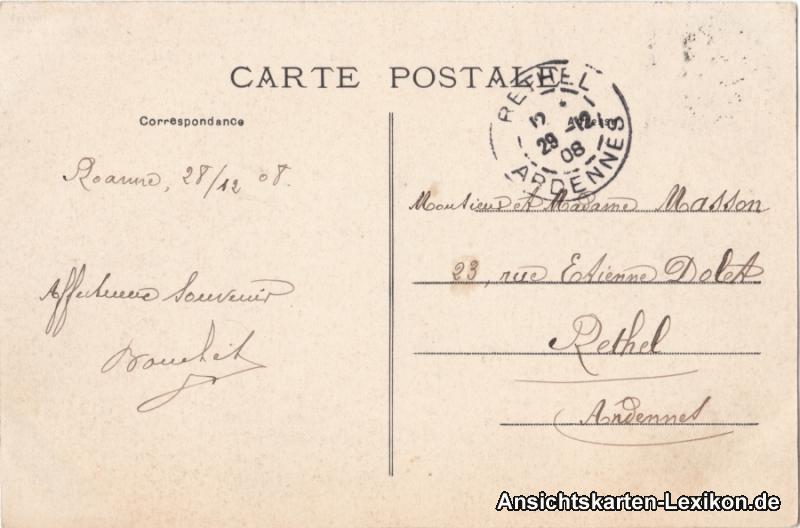 CARTE POSTALE
Correspondance
Roanne, 28/12 08.
Affectueux Souvenir
Bouchet
RETHEL
12 *
29 -12
08
ARDENNES
Monsieur et Madame Masson
23, rue Etienne Dolet
Rethel
Ardennes
Ansichtskarten-Lexikon.de